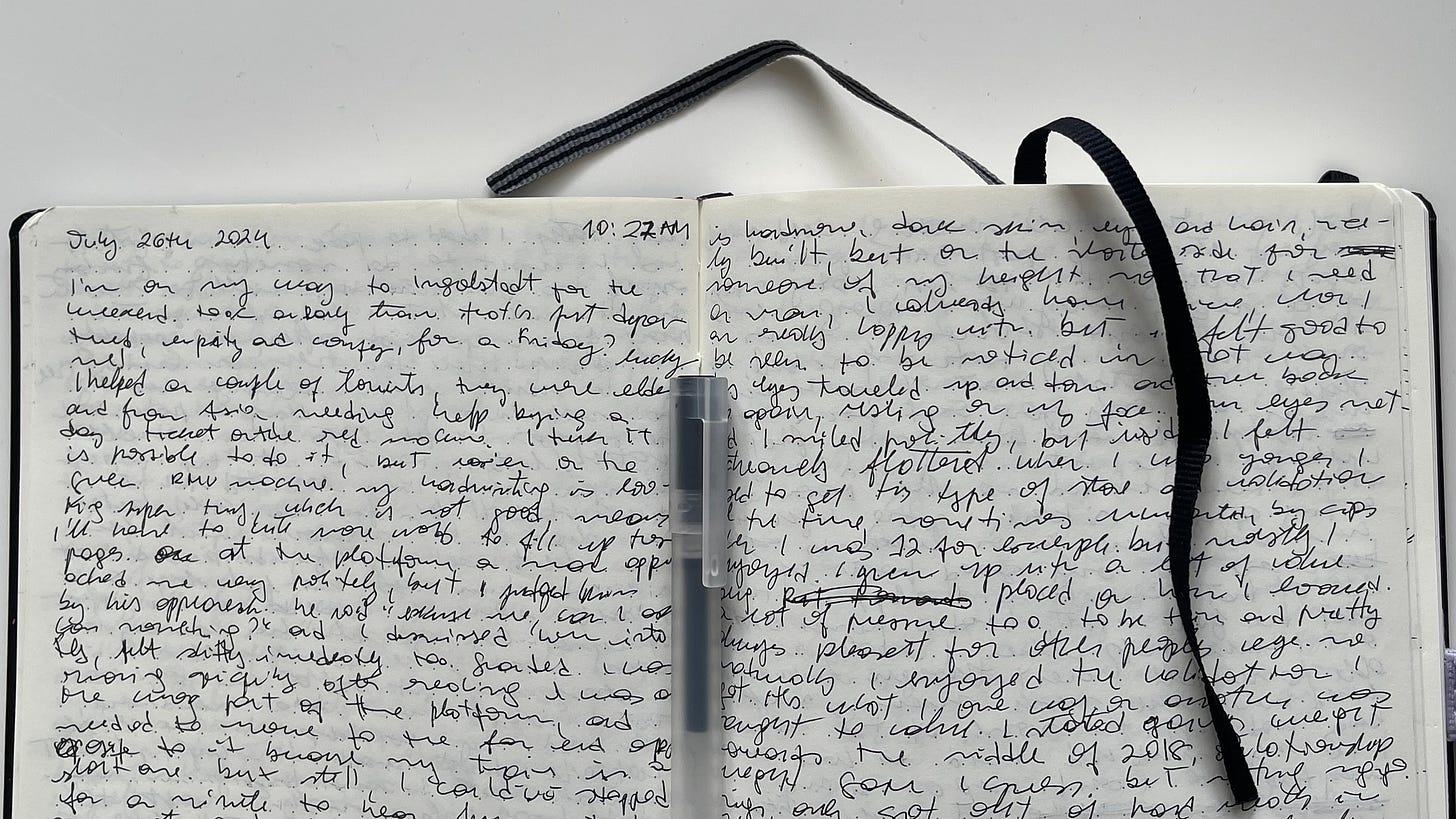 July 26th 2024
10:27 AM
I'm on my way to Ingolstadt for the
weekend. Took an early train that's just depar-
ted, empty and comfy, for a Friday? lucky
me!
I helped a couple of tourists, they were elder
and from Asia needing help bying a
day ticket on the red machine. I think it
is possible to do it, but easier on the
green RMV machine. my handwriting is loo-
king super tiny, which is not good, means
I'll have to write more words to fill up these
pages. at the platform a man appro
ached me very politely, but I judged him
by his approach. he said "excuse me, can I ask
you something?" and I dismissed him instan
tly, felt shitty immediately too. Granted I was
moving quickly after realising I was on
the wrong part of the platform, and
needed to move to the far end
to it because my train is a
short one. but still, I could've stopped
for a minute to hear
is handsome, dark skin, eyes and hair, nice-
ly built, but on the shorter side for
someone of my height not that I need
a man, I already have one, who I
am really happy with. but it felt good to
be seen, to be noticed in that way.
his eyes traveled up and down and then back
up again, resting on my face. our eyes met
and I smiled politely, but inside I felt
flattered. when I was younger I
used to get this type of stare and validation
all the time sometimes by
I was 12 for example. but mostly I
enjoyed. I grew up with a lot of value
being placed on how I looked.
a lot of pressure too. to be thin and pretty
always pleasant for other people's
naturally I enjoyed the validation I
got it's what I one way or another was
taught to value. I started gaining weight
towards the middle of 2018, relationship
weight gain I guess, but